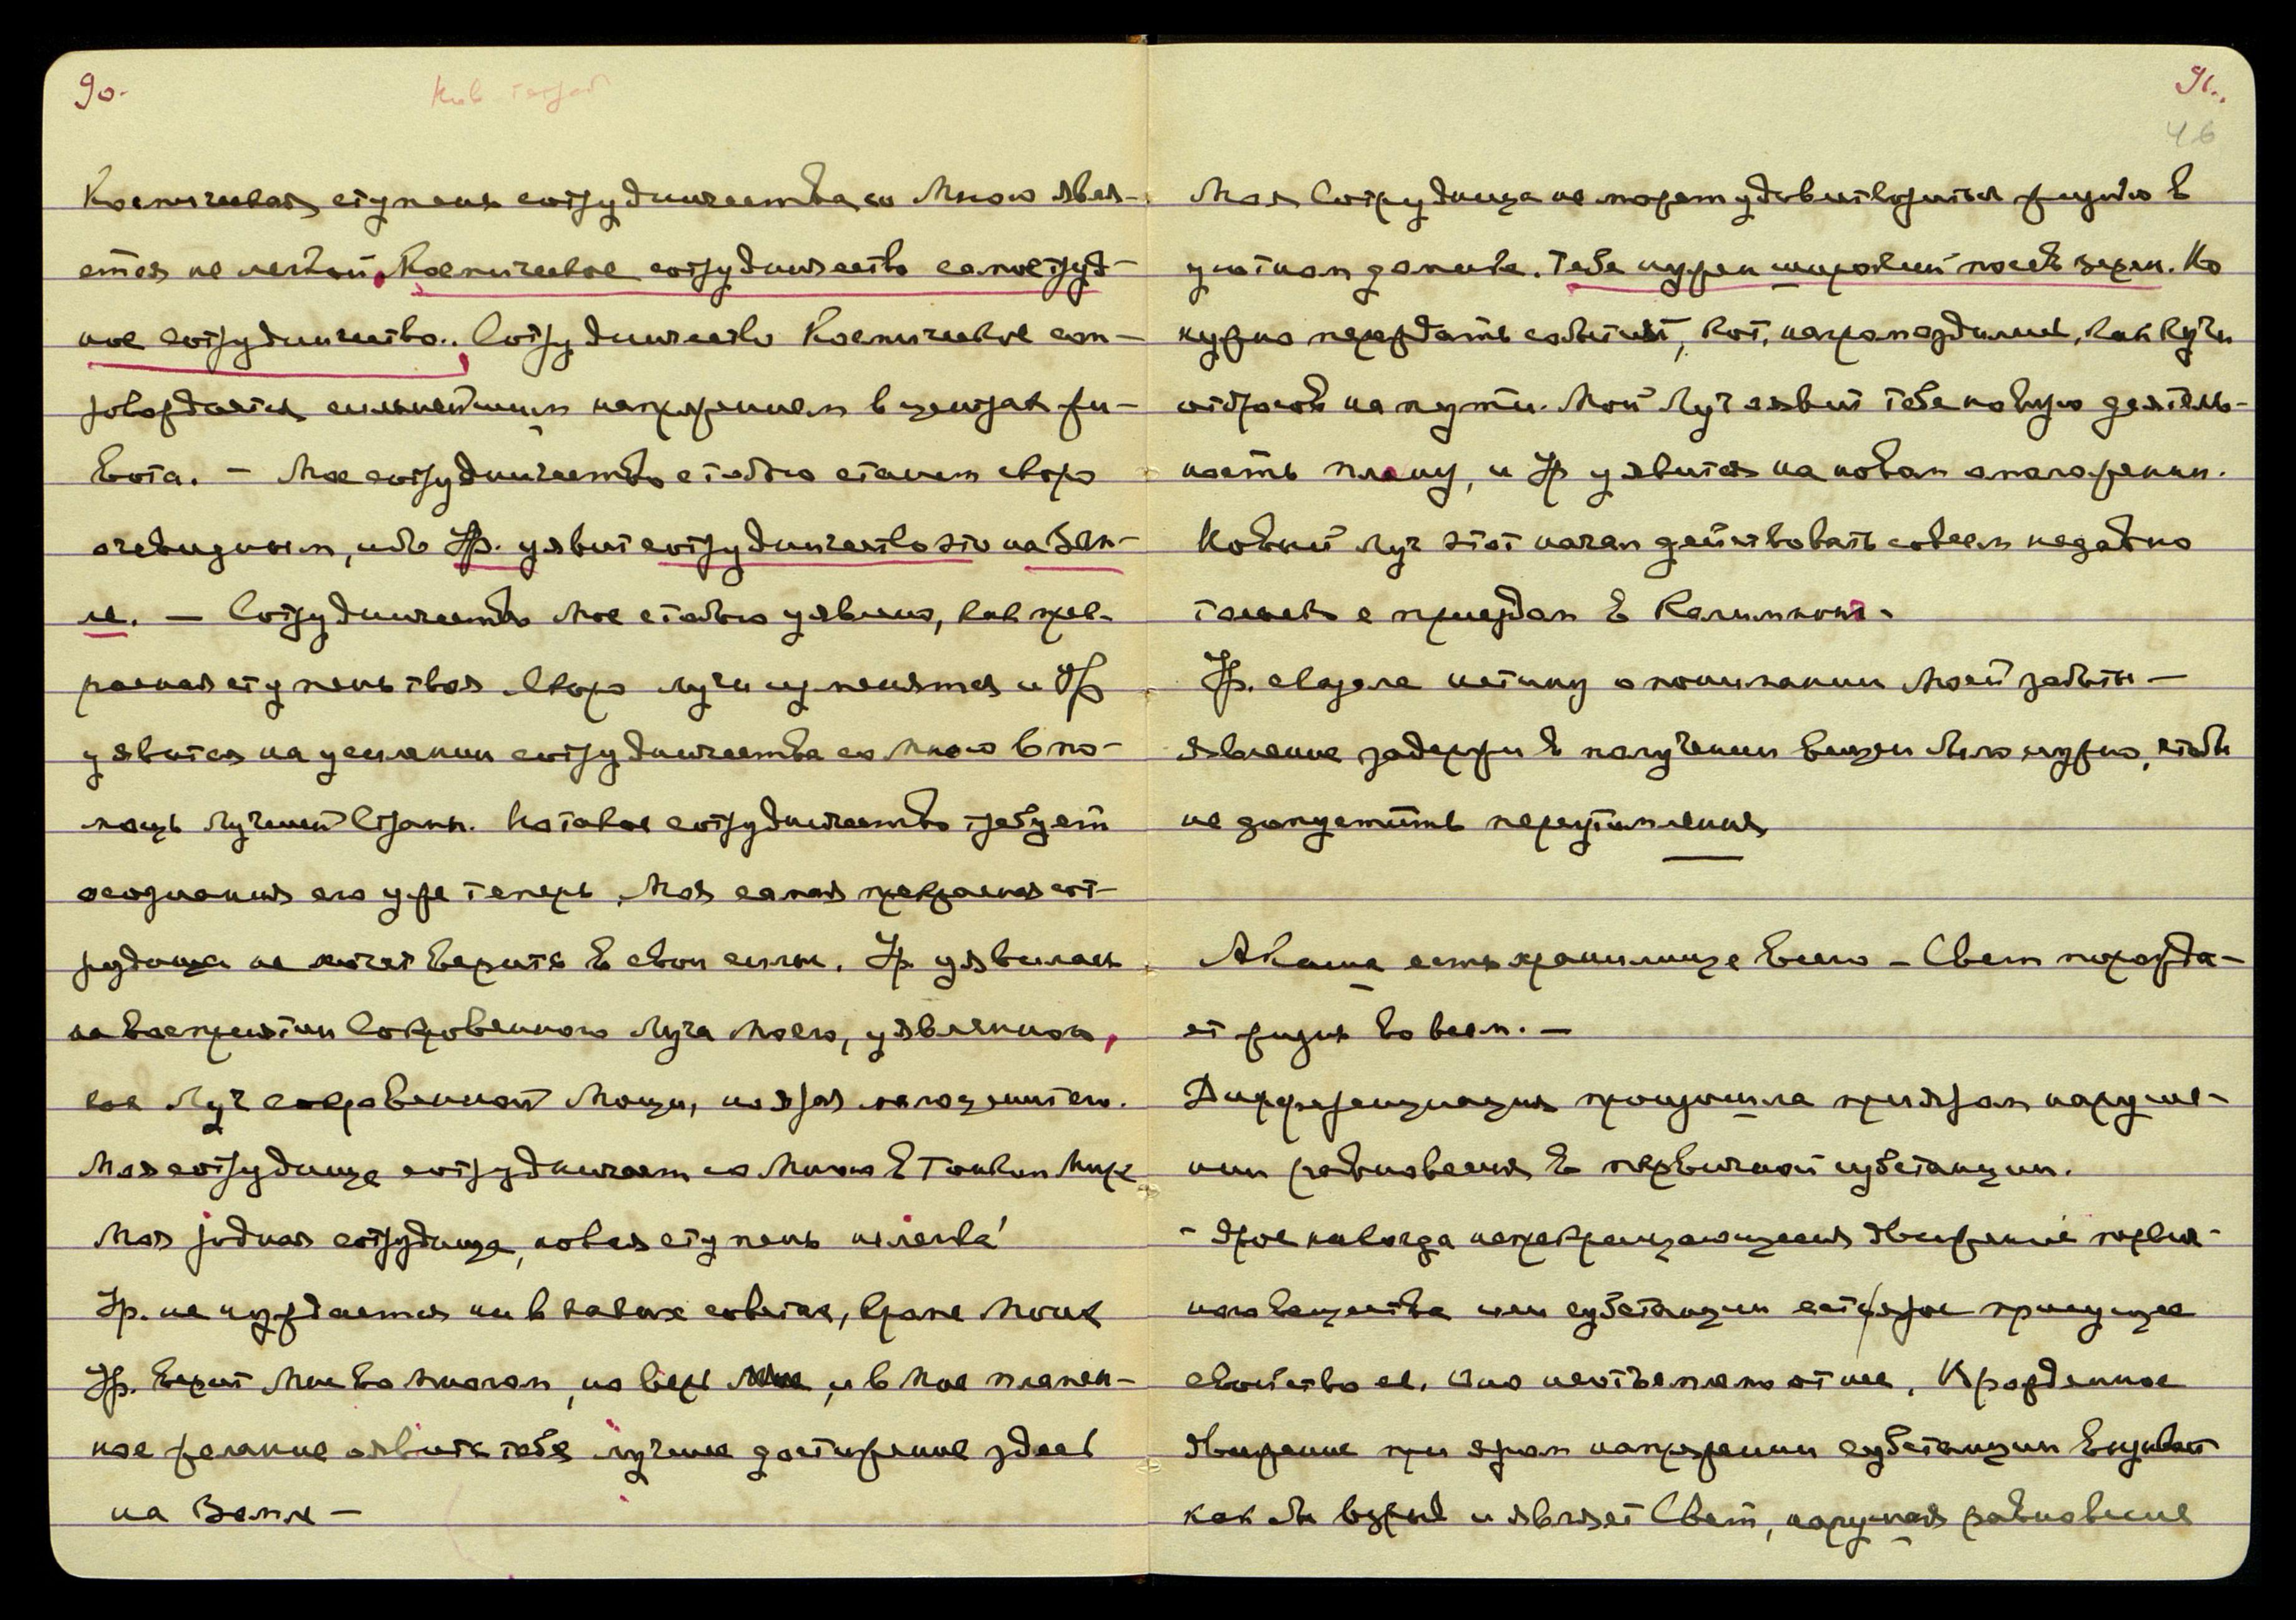 90.
Космическая ступень сотрудничества со Мною явля-
ется не легкой, Космическое сотрудничество самое труд-
ное сотрудничество.. Сотрудничество Космическое соп-
ровождается сильнейшим напряжением в центрах жи-
вота. – Мое сотрудничество с тобою станет скоро
очевидным, ибо Ур. уявит сотрудничество это на Зем-
ле. – Сотрудничество Мое с тобою уявлено, как прек-
расная ступень твоя Скоро лучи уменятся и Ур
уявится на усилении сотрудничества со Мною в по-
мощь лучшей Страны. Но такое сотрудничество требует
осознания его уже теперь, Моя самая прекрасная сот-
рудница не хочет верить в свои силы. Ур уявилась
на восприятии Сокровенного Луча Моего, уявленного,
как Луч сокровенной Мощи, но зря малоценит его.
Моя сотрудница сотрудничает со Мною в Тонком Мире
Моя родная сотрудница, новая ступень нелегка!
Ур. не нуждается ни в каких советах, кроме Моих
Ур. верит Мне во многом, но верь и в Мое пламен-
ное желание явить тебе лучшее достижение здесь
на Земле –
91.
46
Моя Сотрудница не может удовлетвориться жизнью в
уютном домике. Тебе нужен широкий посев зерен. Но
нужно переждать события, кот. нагромоздились, как кучи
отбросов на пути. Мой Луч явит тебе новую деятель-
ность плану, и Ур уявится на новом омоложении.
Новый луч этот начал действовать совсем недавно
только с приездом в Калимпонг.
Ур. сказала истину о понимании Моей заботы –
явление задержки в получении визы было нужно, чтобы
не допустить переутомления
Акаша есть хранилище всего – Свет порожда-
ет жизнь во всем. –
Дифференциация произошла при яром наруше-
нии равновесия в первичной субстанции.
- Ярое никогда непрекращающееся движение первич-
ного вещества или субстанции есть ярое присущее
свойство ее. Оно неотъемлемо от нее. Врожденное
движение при яром напряжении субстанции вызывает
как бы взрыв и являет Свет, нарушая равновесие